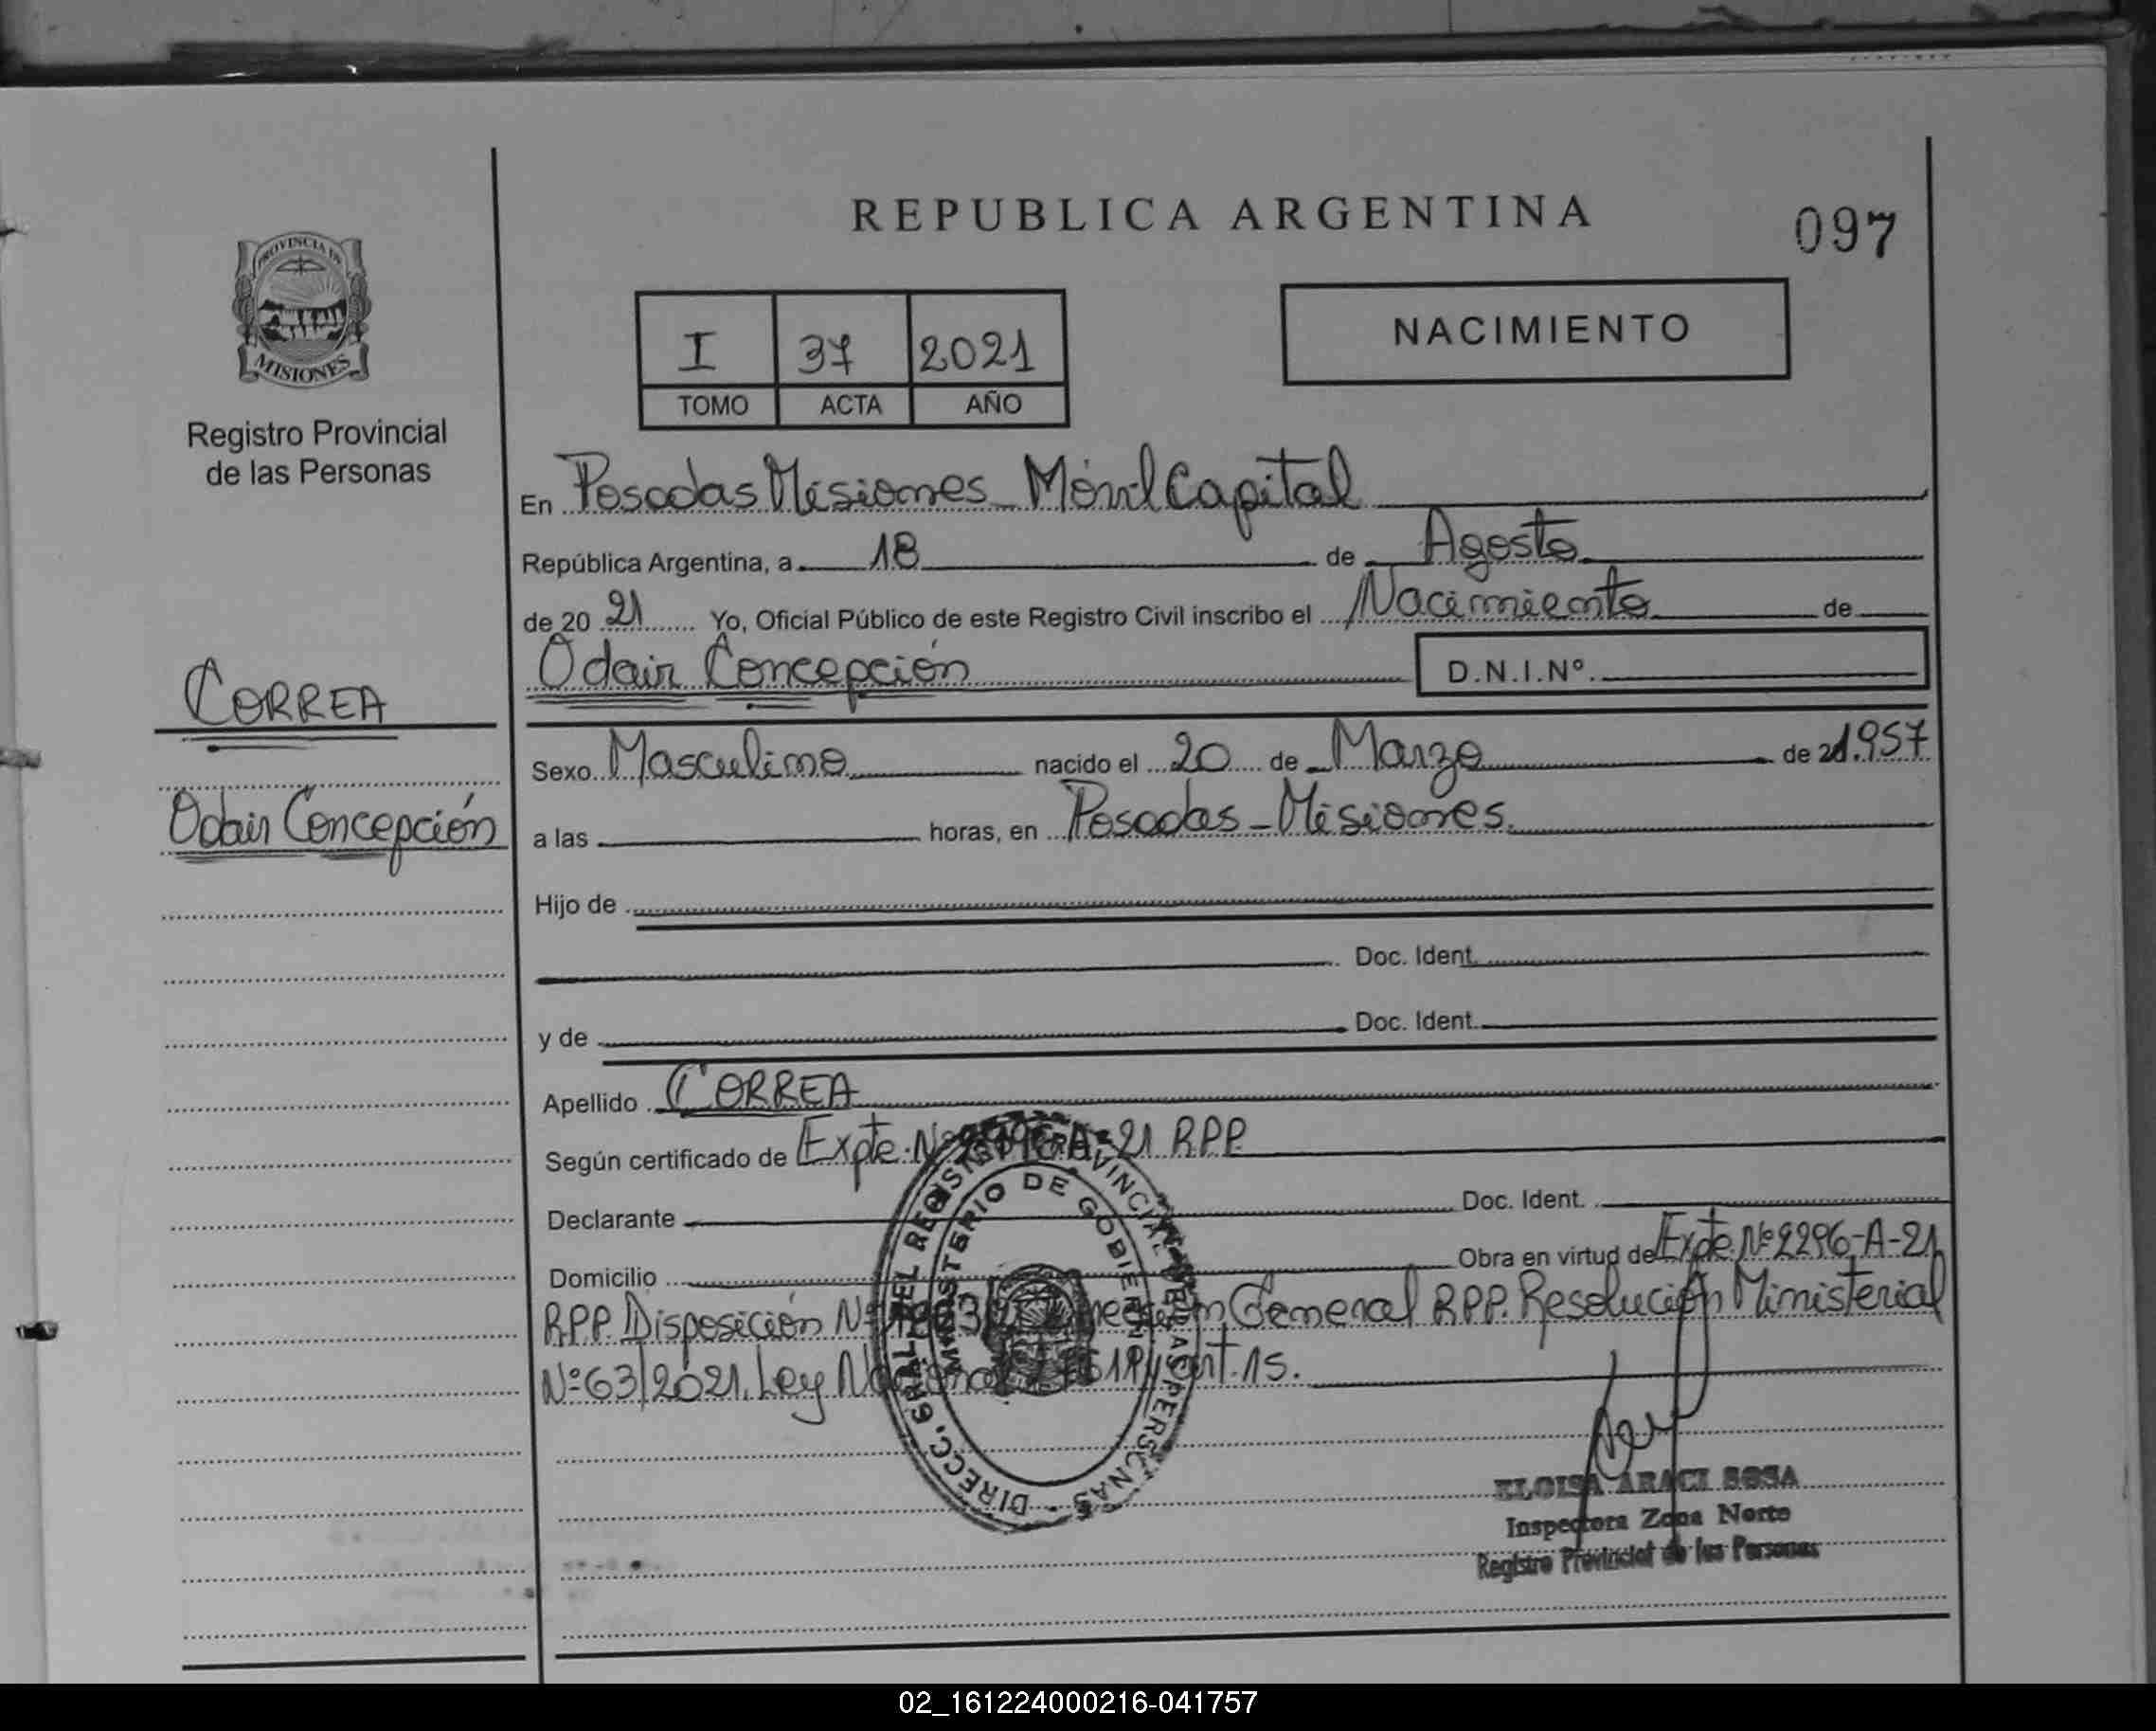 REPUBLICA ARGENTINA
097
PROVINCIA DE
MISIONES
Registro Provincial
de las Personas
I 37 2021
TOMO ACTA AÑO
NACIMIENTO
En Posadas Misiones Móvil Capital
República Argentina, a 18 de Agosto
de 20 21 Yo, Oficial Público de este Registro Civil inscribo el Nacimiento de
Odair Concepción D.N.I.Nº.
CORREA
Sexo Masculino nacido el 20 de Marzo de 1.957
Odair Concepción
a las horas, en Posadas - Misiones.
Hijo de
Doc. Ident.
y de Doc. Ident.
Apellido CORREA
Según certificado de Expte. Nº A-21 RPP
Declarante Doc. Ident.
Domicilio Obra en virtud de Expte. Nº 2296-A-21
RPP. Disposición Nº General RPP. Resolución Ministerial
Nº 63/2021. Ley art. 15.
DIRECC. GRAL. DEL REGISTRO PROVINCIAL DE LAS PERSONAS
MINISTERIO DE GOBIERNO
ELOISA ARACI SOSA
Inspectora Zona Norte
Registro Provincial de las Personas
02_161224000216-041757